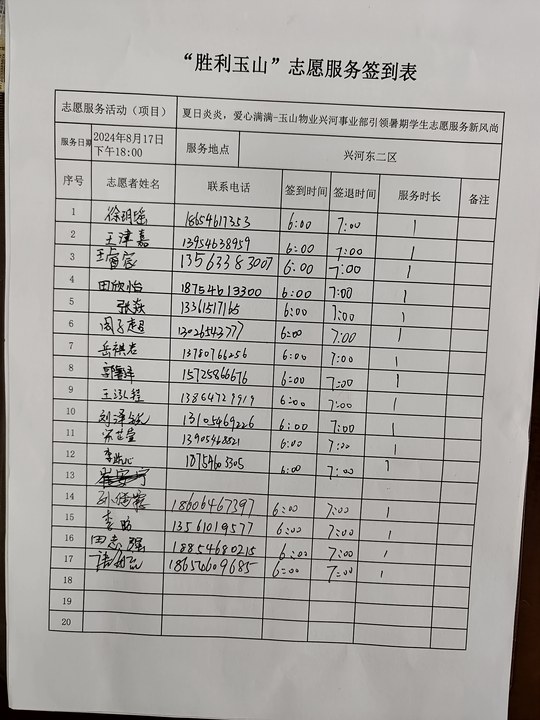 “胜利玉山”志愿服务签到表
志愿服务活动（项目） 夏日炎炎，爱心满满-玉山物业兴河事业部引领暑期学生志愿服务新风尚
服务日期 2024年8月17日下午18:00 服务地点 兴河东二区
序号 志愿者姓名 联系电话 签到时间 签退时间 服务时长 备注
1 18654617353 6:00 7:00 1
2 王津嘉 13954638959 6:00 7:00 1
3 13563383007 6:00 7:00 1
4 田欣怡 18754613300 6:00 7:00 1
5 13361517165 6:00 7:00 1
6 13026543777 6:00 7:00 1
7 13780766256 6:00 7:00 1
8 15725866676 6:00 7:00 1
9 13864721919 6:00 7:00 1
10 13105469226 6:00 7:00 1
11 6:00 7:00 1
12 6:00 7:00 1
13
14 18606467397 6:00 7:00 1
15 13561019577 6:00 7:00 1
16 田志强 18854680215 6:00 7:00 1
17 18654609685 6:00 7:00 1
18
19
20